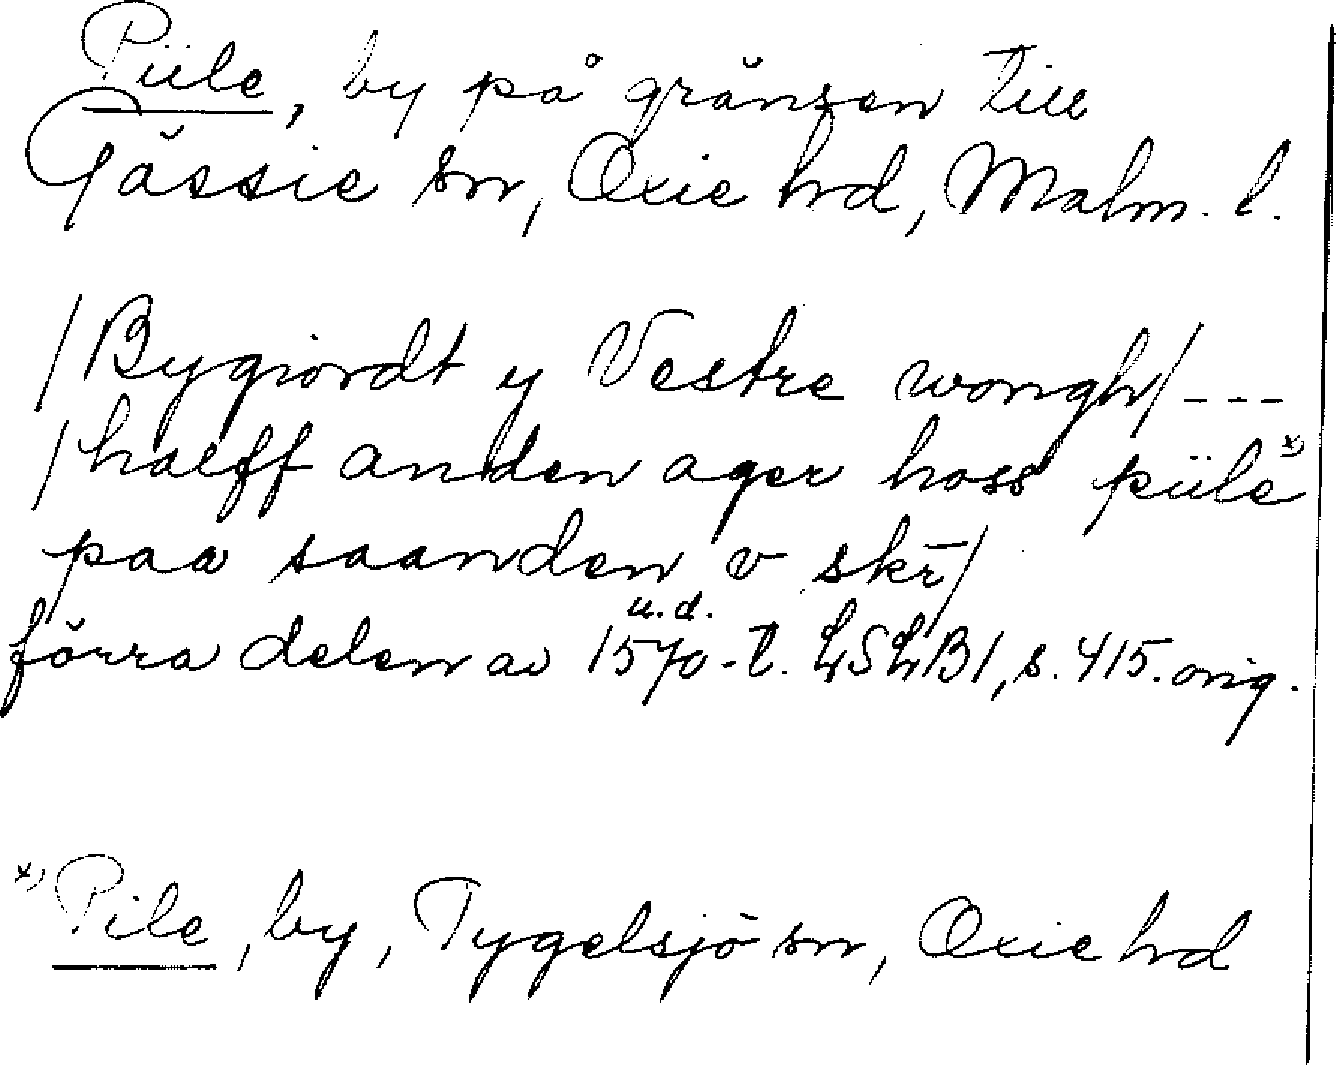 Piile, by på gränsen till
Gässie sn, Oxie hd, Malm. l.
/Bygiordt y Vestre wongh/ ---
/halff anden ager hoss piile x)
paa saanden v skr/
u.d.
förra delen av 1570-t. LSLB1, s. 415. orig.
x) Pile, by, Tygelsjö sn, Oxie hd